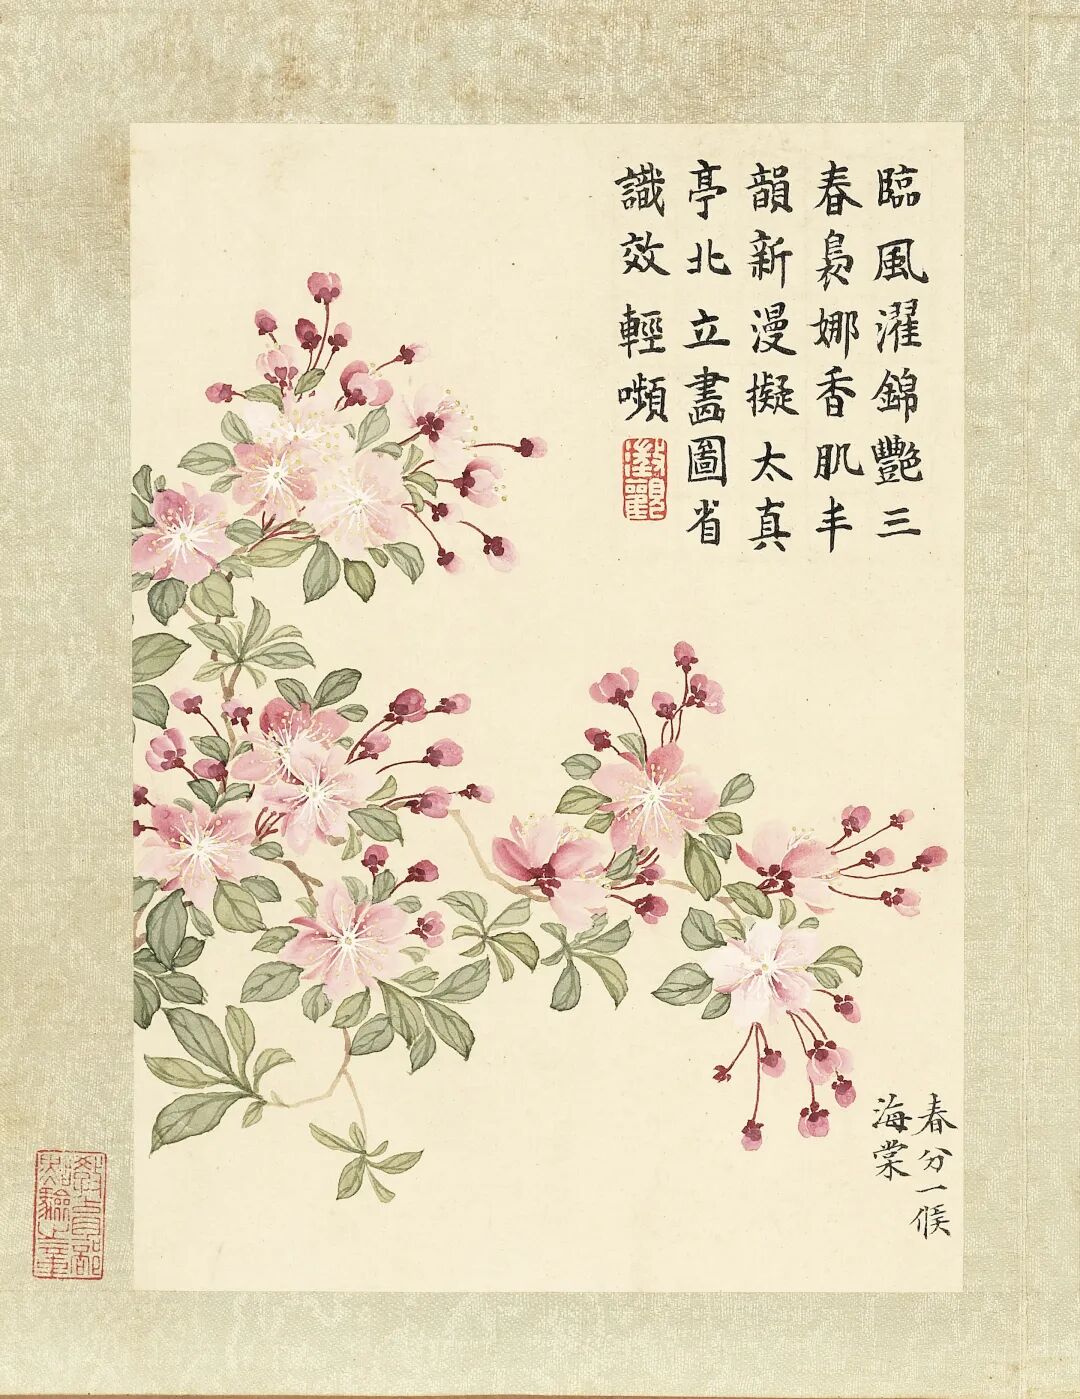 臨風濯錦艷三
春裊娜香肌丰
韻新漫擬太真
亭北立畵圖省
識效輕嚬
春分一候
海棠